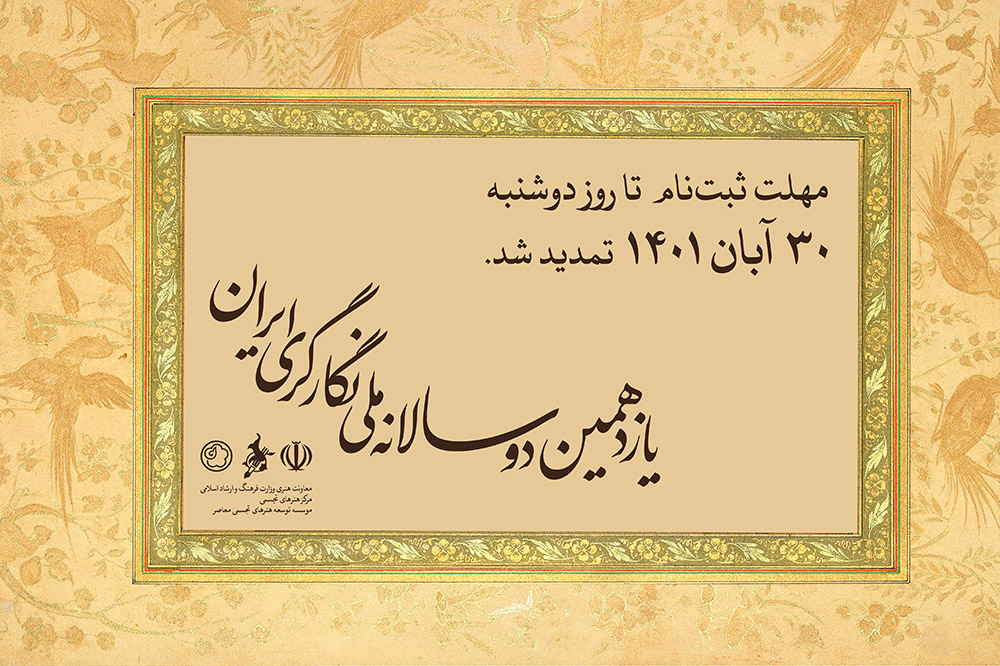 مهلت ثبت‌نام تا روز دوشنبه
۳۰ آبان ۱۴۰۱ تمدید شد.
یازدهمین دوسالانه ملی نگارگری ایران
معاونت هنری وزارت فرهنگ و ارشاد اسلامی
مرکز هنرهای تجسمی
موسسه توسعه هنرهای تجسمی معاصر